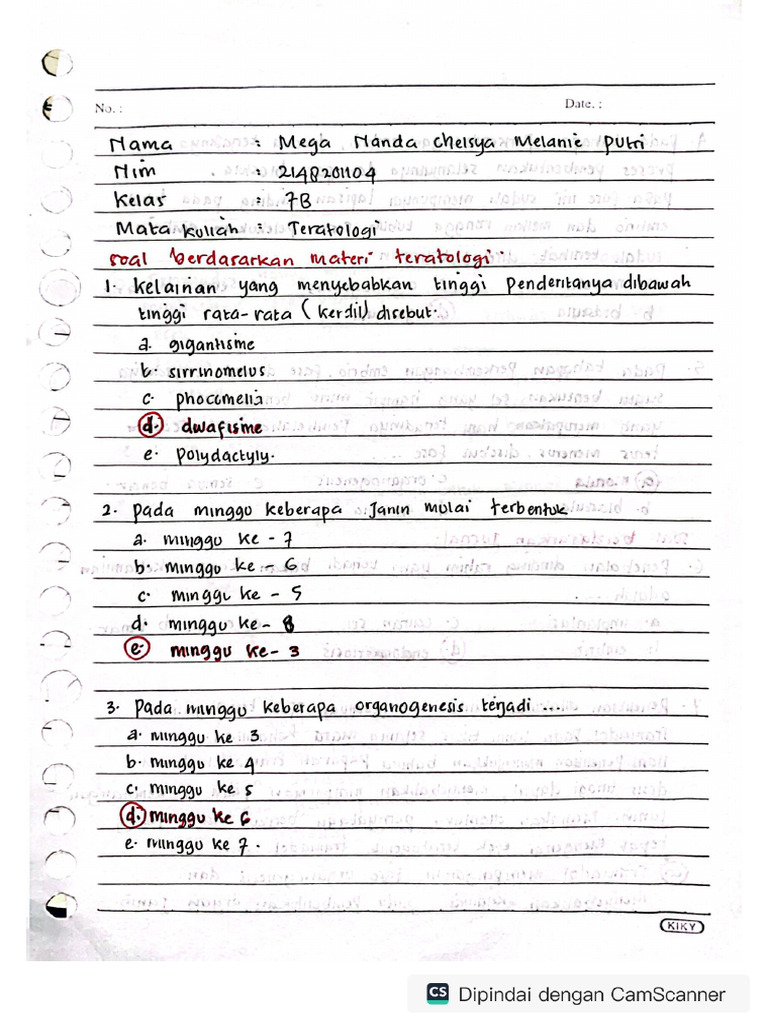 No. :
Date. :
Nama : Mega Nanda Chelsya Melanie Putri
Nim : 2148201104
Kelas : 7B
Mata kuliah : Teratologi
soal berdasarkan materi teratologi.
1. Kelainan yang menyebabkan tinggi penderitanya dibawah
tinggi rata-rata (kerdil) disebut.
a. gigantisme
b. sirrinomelus
c. phocomelia
d. dwafisme
e. polydactyly.
2. Pada minggu keberapa Janin mulai terbentuk
a. minggu ke - 7
b. minggu ke - 6
c. minggu ke - 5
d. minggu ke - 8
e. minggu ke - 3
3. Pada minggu keberapa organogenesis terjadi ...
a. minggu ke 3
b. minggu ke 4
c. minggu ke 5
d. minggu ke 6
e. minggu ke 7.
KIKY
CS Dipindai dengan CamScanner